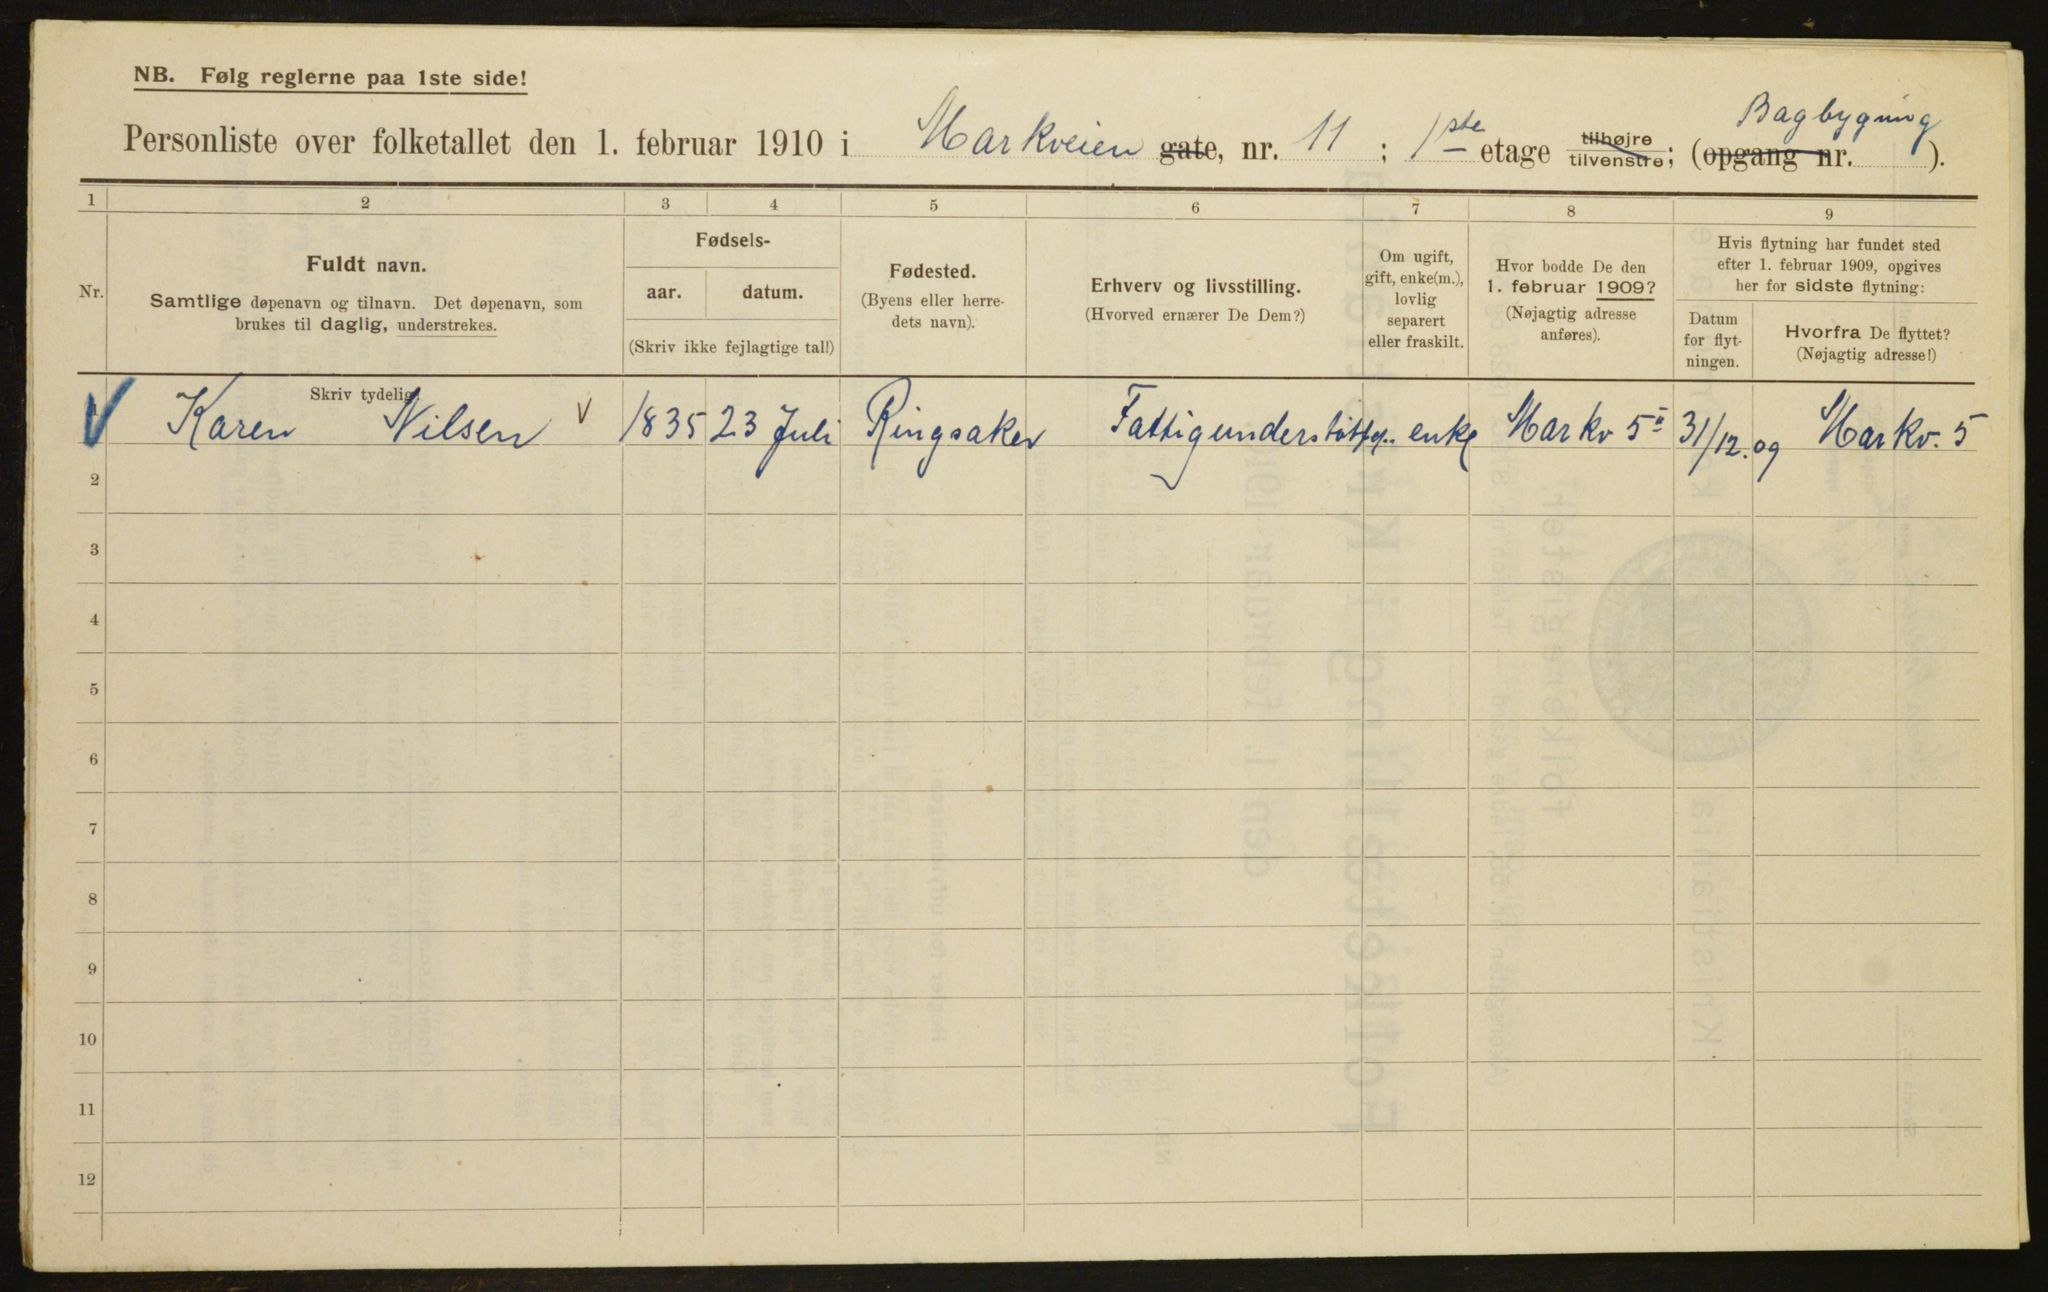 NB. Følg reglerne paa 1ste side!
Personliste over folketallet den 1. februar 1910 i Markveien gate, nr. 11 ; 1ste etage tilhøjre tilvenstre; (opgang nr. Bagbygning ).
1 2 3 4 5 6 7 8 9
Nr.
Fuldt navn.
Samtlige døpenavn og tilnavn. Det døpenavn, som
brukes til daglig, understrekes.
Fødsels-
aar. datum.
(Skriv ikke fejlagtige tal!)
Fødested.
(Byens eller herre-
dets navn).
Erhverv og livsstilling.
(Hvorved ernærer De Dem?)
Om ugift,
gift, enke(m.),
lovlig
separert
eller fraskilt.
Hvor bodde De den
1. februar 1909?
(Nøjagtig adresse
anføres).
Hvis flytning har fundet sted
efter 1. februar 1909, opgives
her for sidste flytning:
Datum
for flyt-
ningen.
Hvorfra De flyttet?
(Nøjagtig adresse!)
Skriv tydelig!
1 Karen Nilsen 1835 23 Juli Ringsaker enke Markv 5 II 31/12.09 Markv. 5
2
3
4
5
6
7
8
9
10
11
12